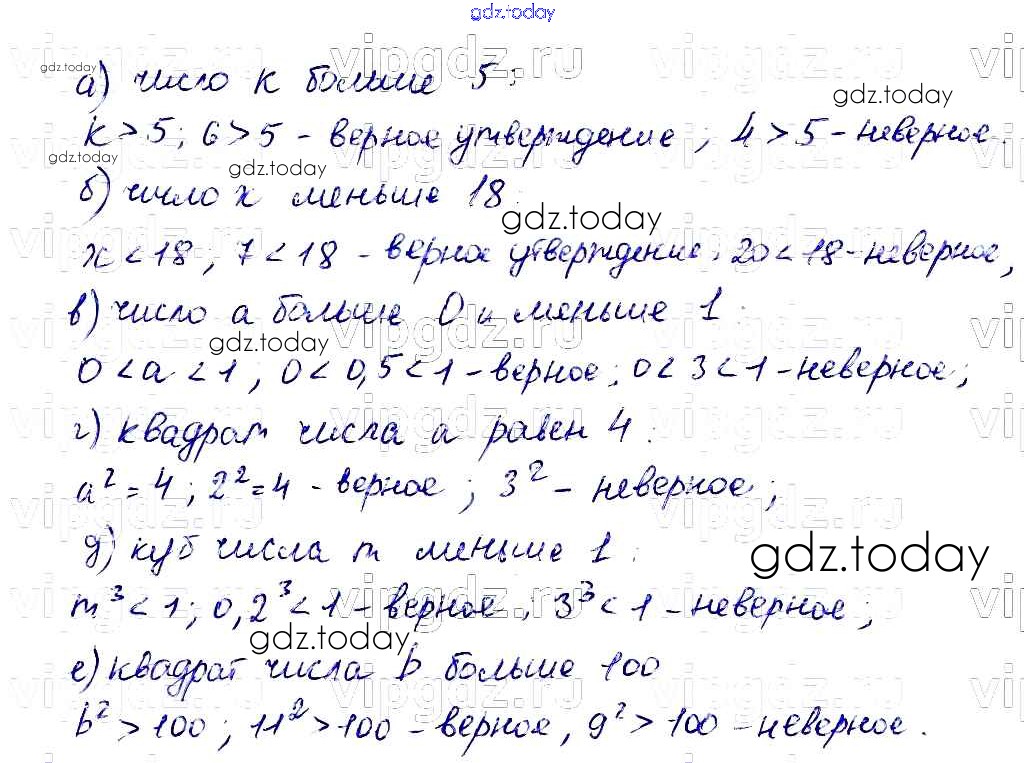 gdz.today
vipgdz.ru vipgdz.ru
gdz.today
а) число k больше 5;
gdz.today
k > 5; 6 > 5 - верное утверждение; 4 > 5 - неверное.
gdz.today
gdz.today
б) число x меньше 18:
gdz.today
x < 18; 7 < 18 - верное утверждение; 20 < 18 - неверное,
в) число a больше 0 и меньше 1:
gdz.today
0 < a < 1; 0 < 0,5 < 1 - верное; 0 < 3 < 1 - неверное;
г) квадрат числа a равен 4:
a² = 4; 2² = 4 - верное; 3² - неверное;
д) куб числа m меньше 1:
gdz.today
m³ < 1; 0,2³ < 1 - верное; 3³ < 1 - неверное;
gdz.today
е) квадрат числа b больше 100
b² > 100; 11² > 100 - верное, 9² > 100 - неверное.